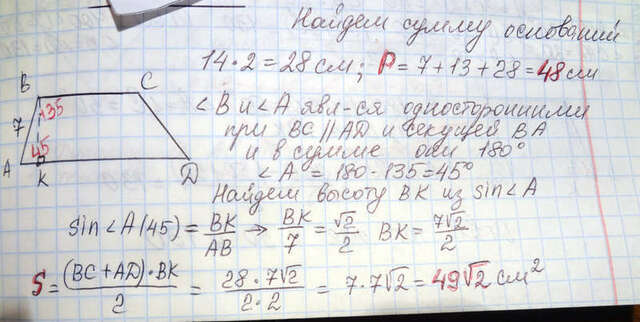 Найдем сумму оснований
14·2=28см; P=7+13+28=48см
∠B и ∠A явл-ся односторонними
при BC||AD и секущей BA
и в сумме они 180°
∠A = 180-135=45°
Найдем высоту BK из sin∠A
B
C
135
7
45
A
K
D
sin∠A(45) = BK/AB → BK/7 = √2/2 BK = 7√2/2
S = (BC+AD)·BK/2 = 28·7√2/2·2 = 7·7√2 = 49√2 см²